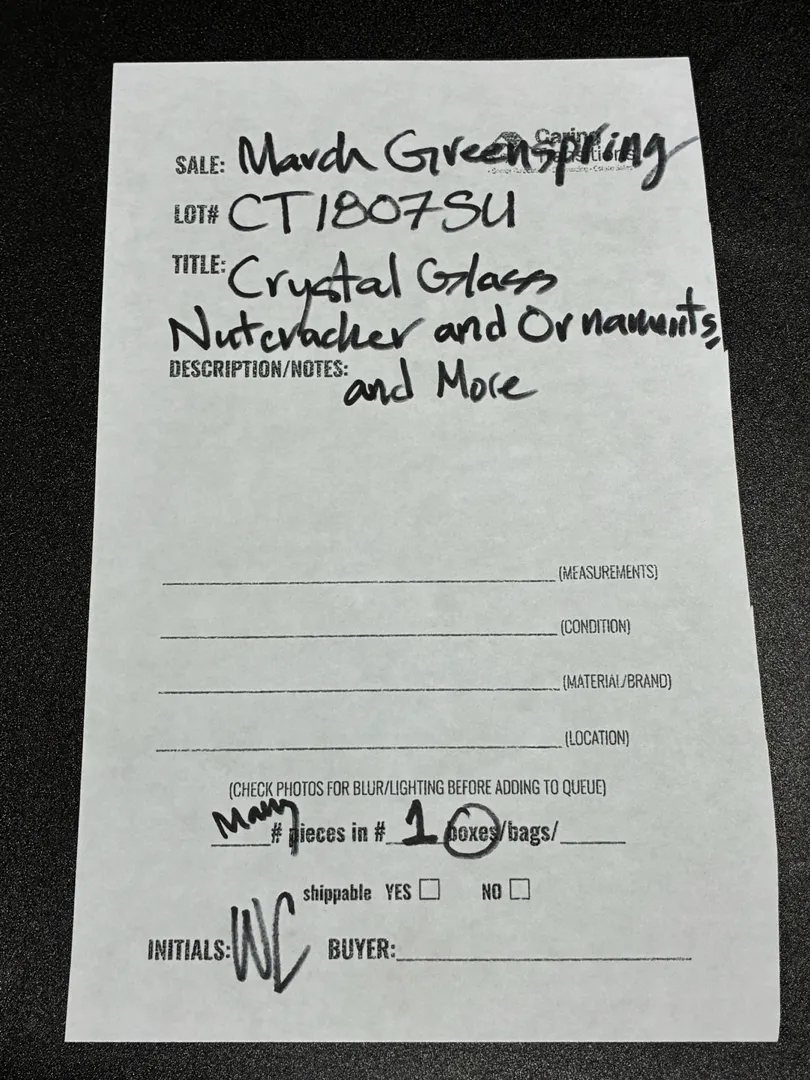 Caring
Transitions
SALE: March Greenspring
LOT# CT1807SU
TITLE: Crystal Glass
Nutcracker and Ornaments,
DESCRIPTION/NOTES: and More
(MEASUREMENTS)
(CONDITION)
(MATERIAL/BRAND)
(LOCATION)
(CHECK PHOTOS FOR BLUR/LIGHTING BEFORE ADDING TO QUEUE)
Many # pieces in # 1 boxes/bags/
shippable YES NO
INITIALS: WC BUYER: